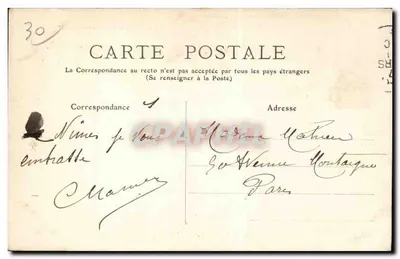 30
CARTE POSTALE
La Correspondance au recto n'est pas acceptée par tous les pays étrangers
(Se renseigner à la Poste)
Correspondance
Adresse
Nîmes je vous
embrasse
Madame Mathieu
50 Avenue Montaigne
Paris